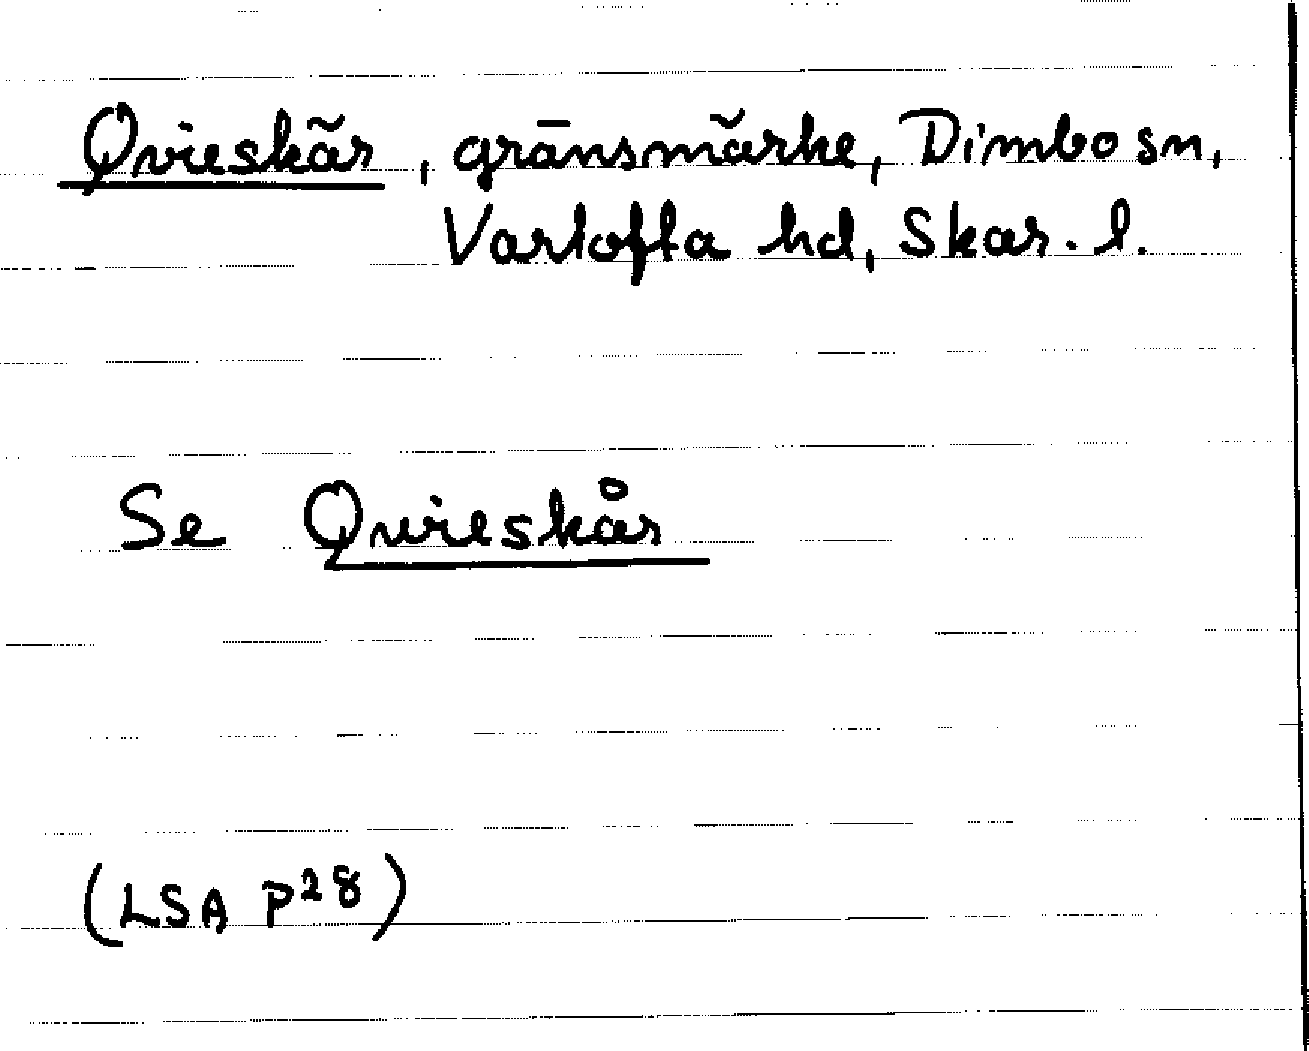 Qvieskär, gränsmärke, Dimbo sn,
Vartofta hd, Skar. l.
Se Qvieskår
(LSA P28)